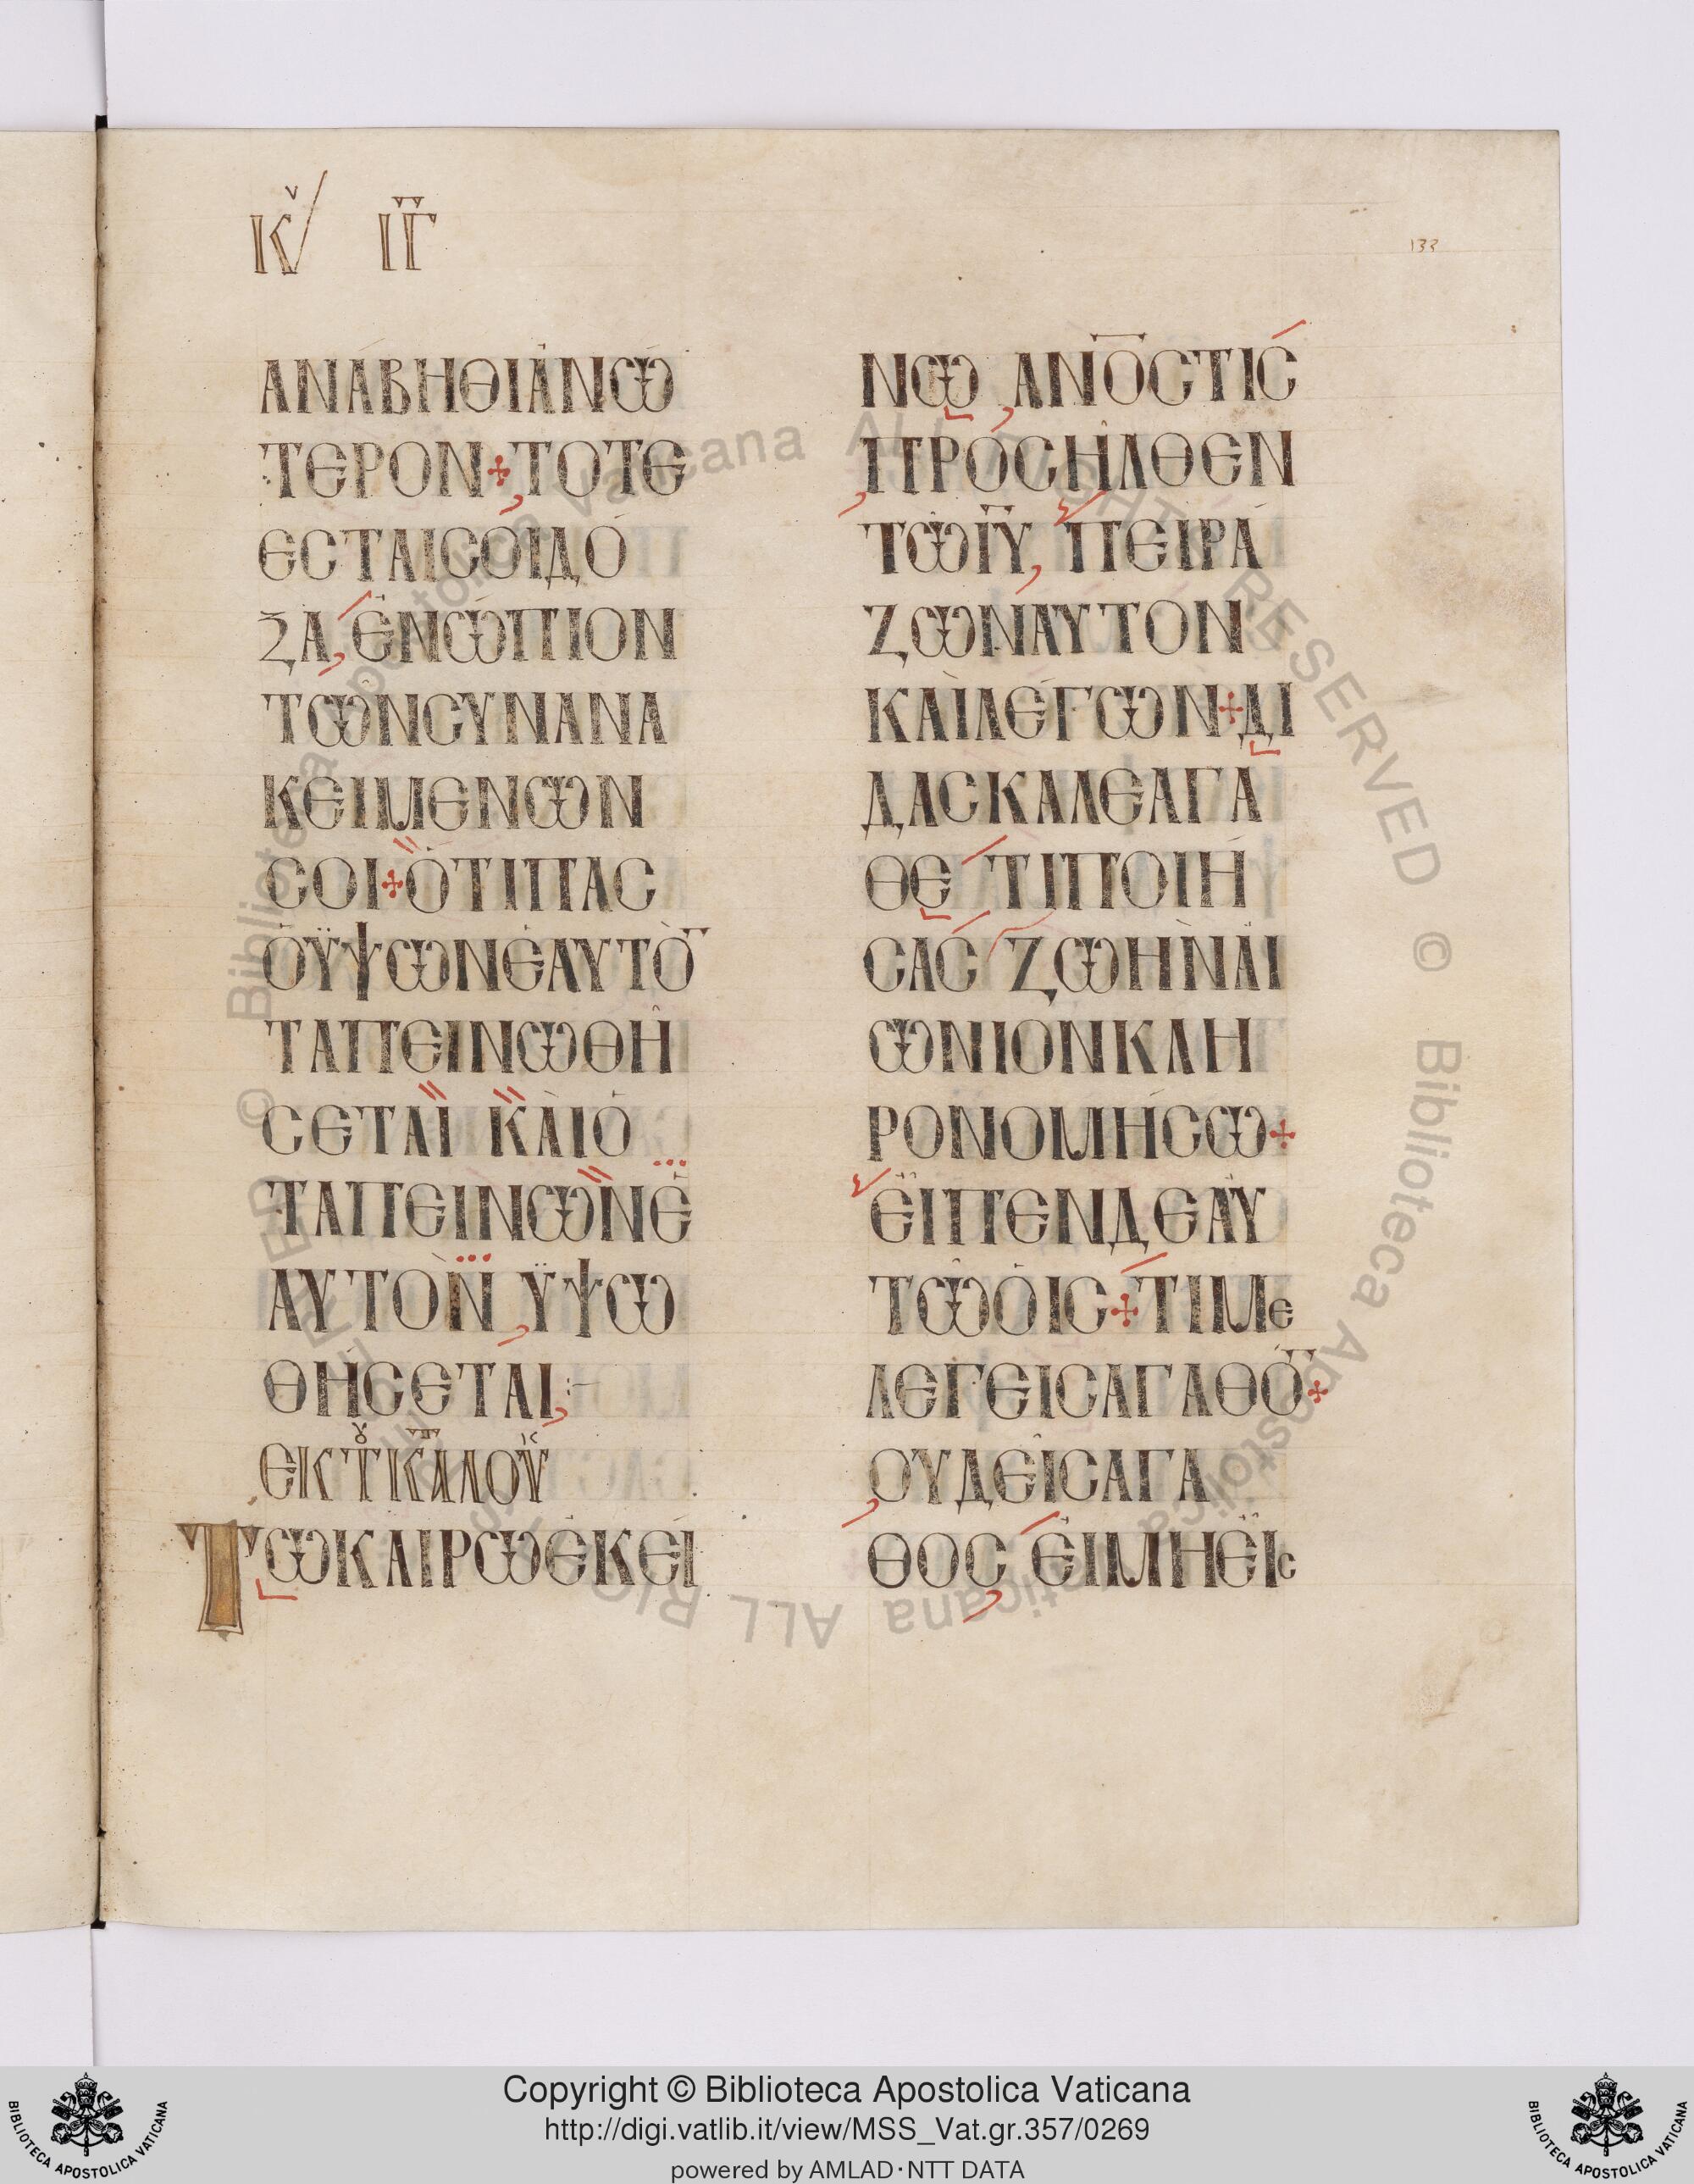 Κυ ΙΓ
133
ΑΝΑΒΗΘΙΑΝΩ
ΤΕΡΟΝ + ΤΟΤΕ
ΕϹΤΑΙϹΟΙΔΟ
ΞΑ, ΕΝΩΠΙΟΝ
ΤΩΝϹΥΝΑΝΑ
ΚΕΙΜΕΝΩΝ
ϹΟΙ + ΟΤΙΠΑϹ
ΟΫΨΩΝΕΑΥΤΟ̅
ΤΑΠΕΙΝΩΘΗ
ϹΕΤΑΙ ΚΑΙΟ
ΤΑΠΕΙΝΩΝΕ
ΑΥΤΟΝ, ΫΨΩ
ΘΗϹΕΤΑΙ:-
ΕΚΤΚΑΛΟΥΚ
ΤΩΚΑΙΡΩΕΚΕΙ
ΝΩ, ΑΝΟ̅ϹΤΙϹ
ΠΡΟϹΗΛΘΕΝ
ΤΩΙ̅Υ̅, ΠΕΙΡΑ
ΖΩΝΑΥΤΟΝ
ΚΑΙΛΕΓΩΝ + ΔΙ
ΔΑϹΚΑΛΕΑΓΑ
ΘΕ ΤΙΠΟΙΗ
ϹΑϹ ΖΩΗΝΑΙ
ΩΝΙΟΝΚΛΗ
ΡΟΝΟΜΗϹΩ +
ΕΙΠΕΝΔΕΑΥ
ΤΩΟΙϹ + ΤΙΜΕ
ΛΕΓΕΙϹΑΓΑΘΟ̅ +
ΟΥΔΕΙϹΑΓΑ
ΘΟϹ, ΕΙΜΗΕΙϹ
© Biblioteca Apostolica Vaticana ALL RIGHTS RESERVED © Biblioteca Apostolica Vaticana ALL RIGHTS RESERVED
Copyright © Biblioteca Apostolica Vaticana
http://digi.vatlib.it/view/MSS_Vat.gr.357/0269
powered by AMLAD·NTT DATA
BIBLIOTECA APOSTOLICA VATICANA
BIBLIOTECA APOSTOLICA VATICANA